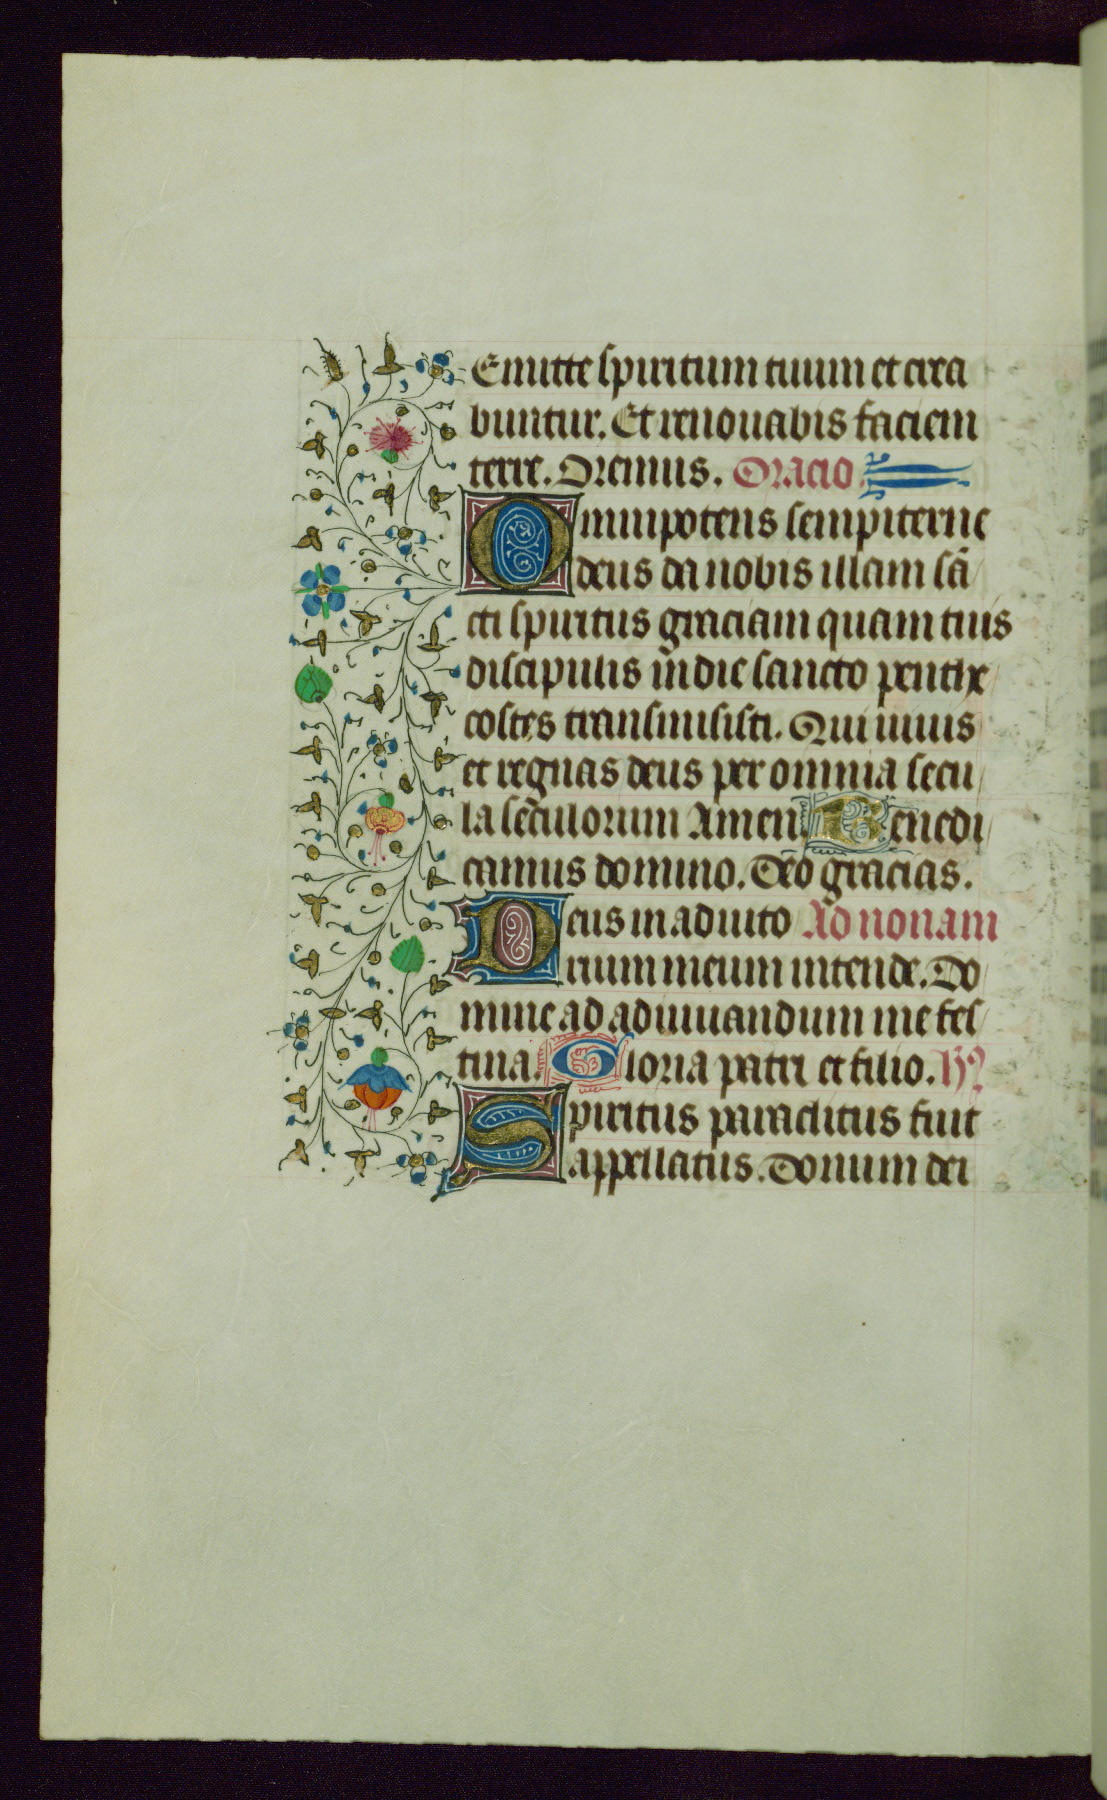 Emitte spiritum tuum et crea
buntur. Et renouabis faciem
terre. Oremus. Oracio
Omnipotens sempiterne
deus da nobis illam sā
cti spiritus graciam quam tuis
discipulis in die sancto pente
costes transmisisti. Qui uiuis
et regnas deus per omnia secu
la seculorum Amen Benedi
camus domino. Deo gracias.
Deus in adiuto Ad nonam
rium meum intende. Do
mine ad adiuuandum me fes
tina. Gloria patri et filio.
Spiritus paraclitus fuit
appellatus. Donum dei